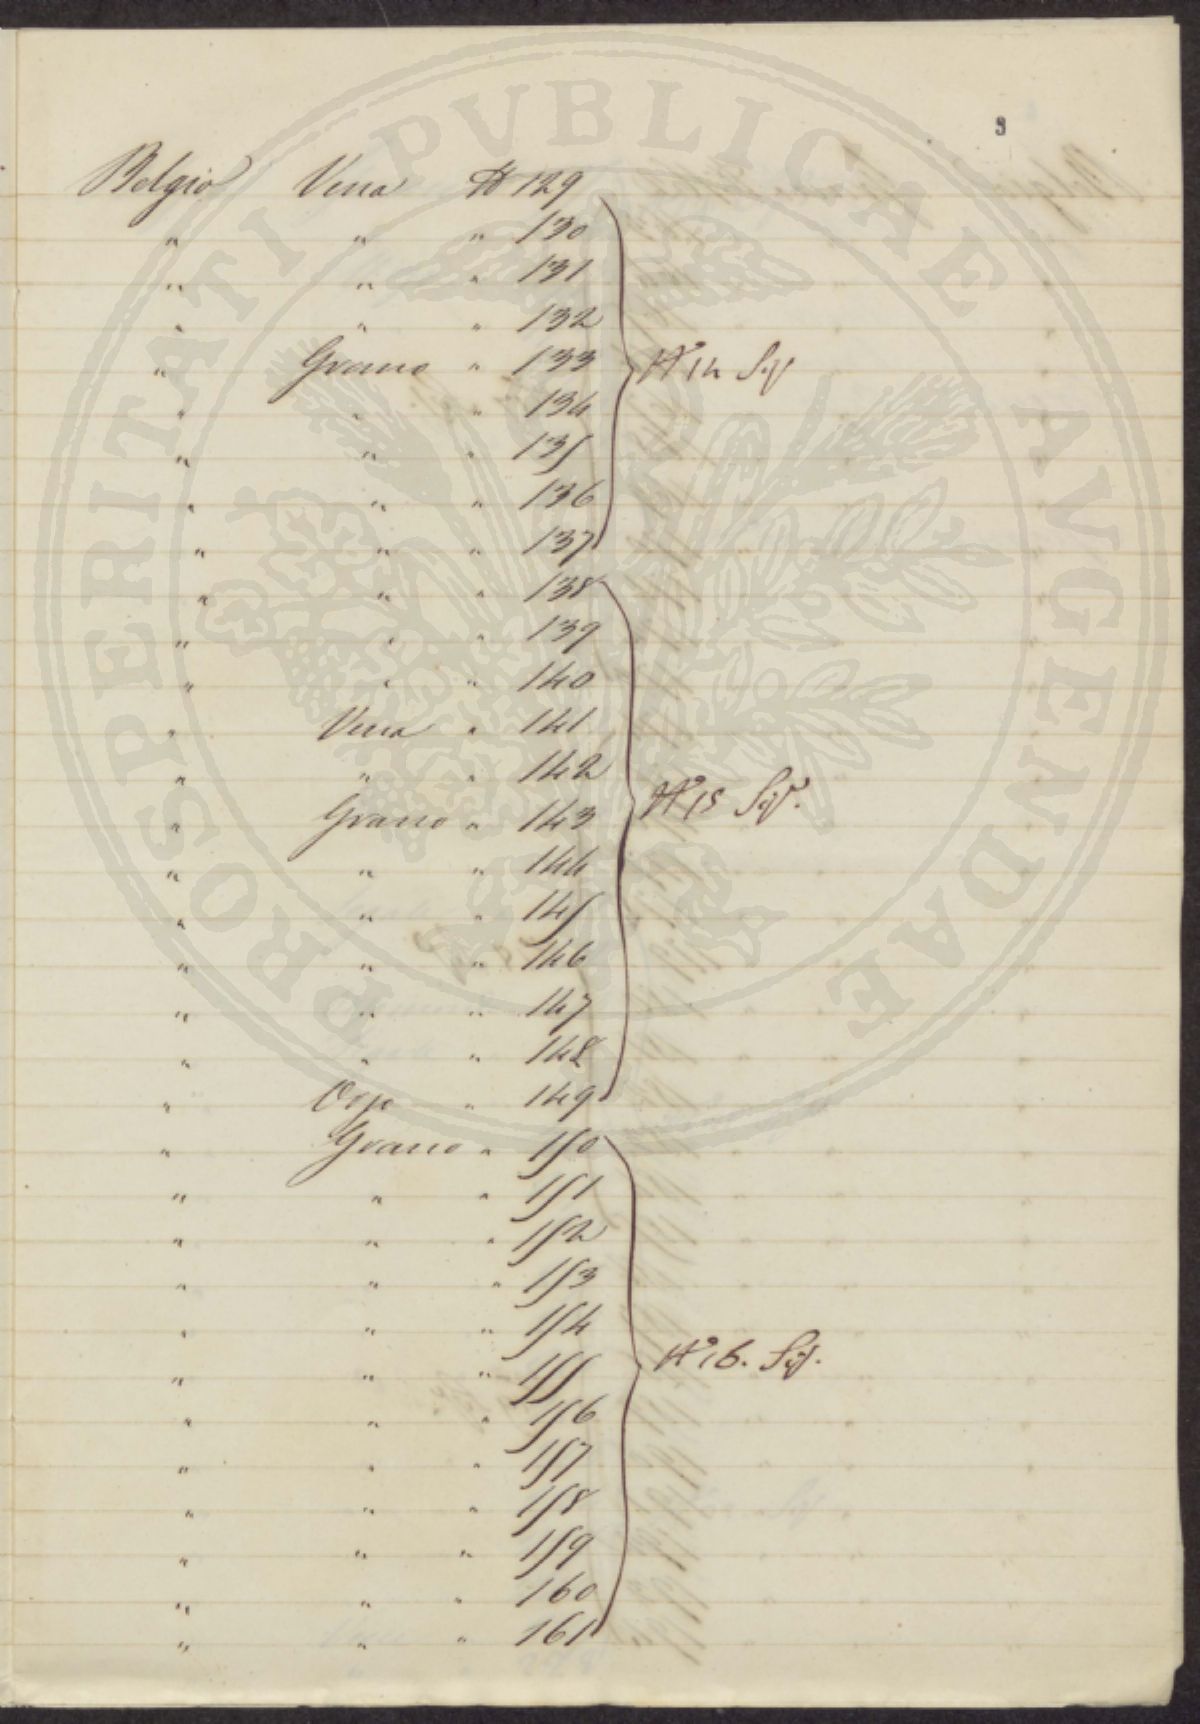 9
Belgio Vena N° 129
" " " 130
" " " 131
" " " 132
" Grano " 133 N° 14
" " " 134
" " " 135
" " " 136
" " " 137
" " " 138
" " " 139
" " " 140
" Vena " 141
" " " 142
" Grano " 143 N° 15
" " " 144
" " " 145
" " " 146
" " " 147
" " " 148
" Orzo " 149
" Grano " 150
" " " 151
" " " 152
" " " 153
" " " 154
" " " 155 N° 16.
" " " 156
" " " 157
" " " 158
" " " 159
" " " 160
" " " 161
PVBLICAE AVGENDAE PROSPERITATI